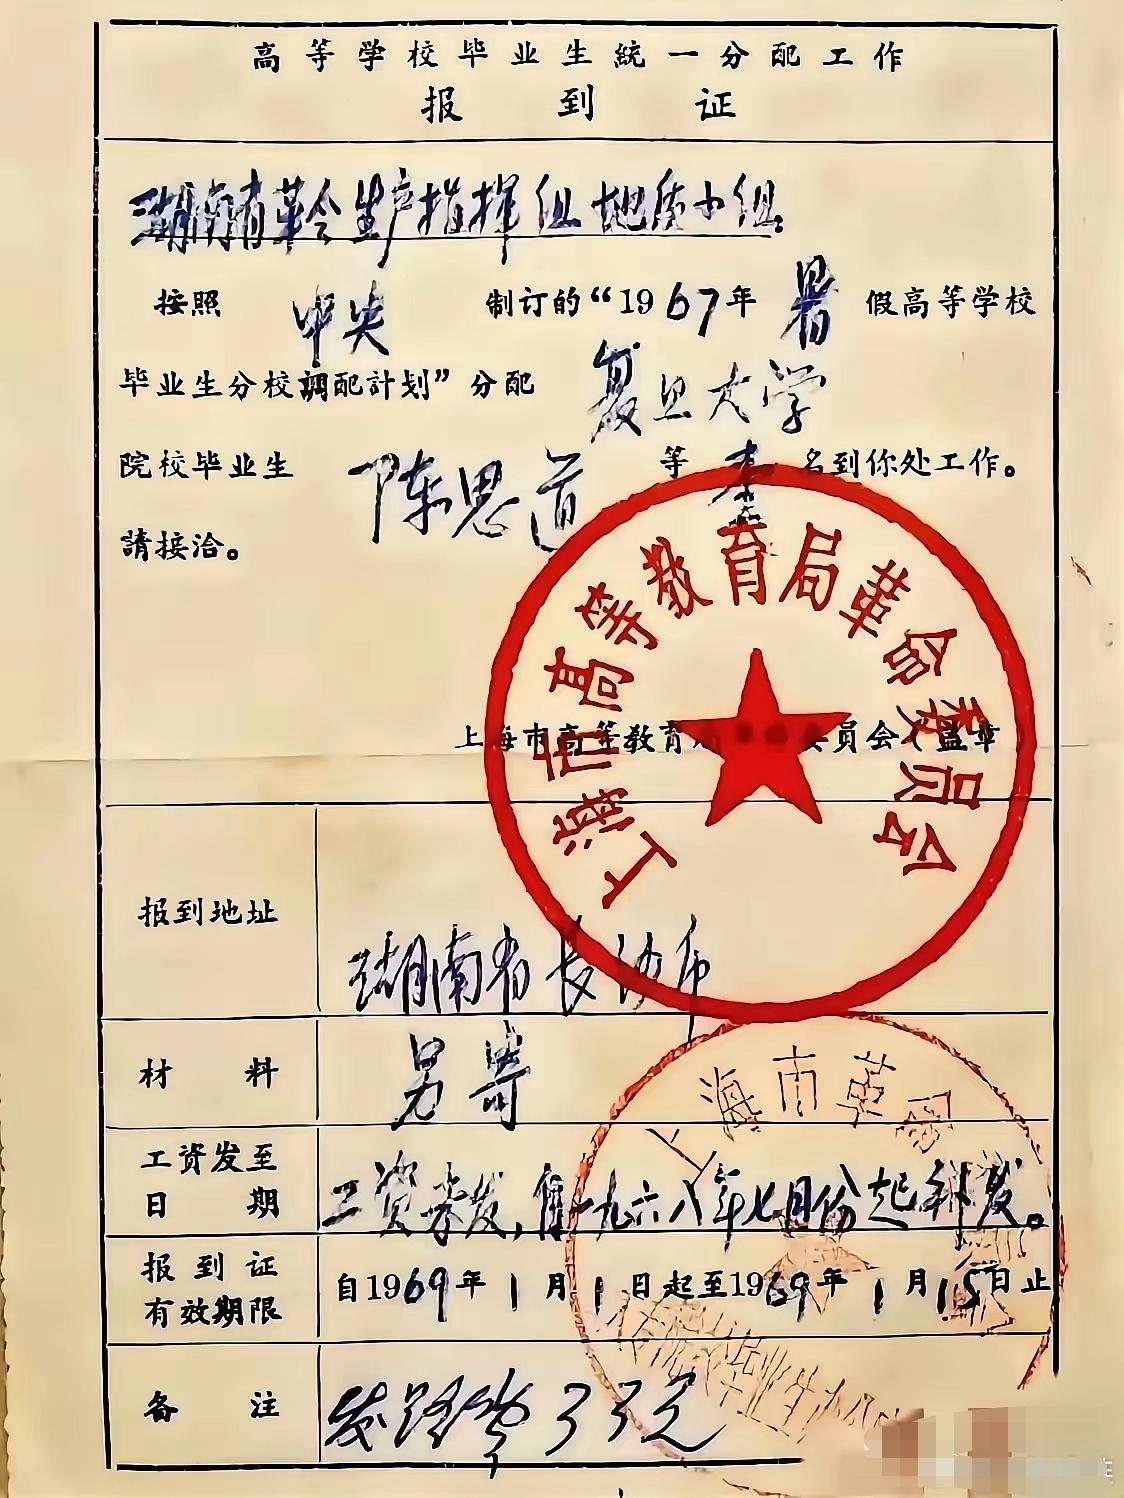 高等学校毕业生統一分配工作
报到证
湖南省革会生产指挥组地质小组
按照 中央 制订的“1967年 暑 假高等学校
毕业生分校調配計划”分配 复旦大学
院校毕业生 陈思道 等 壹 名到你处工作。
請接洽。
上海市高等教育局革命委員会
上海市高等教育 委員会(盖章
报到地址 湖南省长沙市
材料 另寄
工资发至日期 工资未发,自一九六八年七月份起补发。
报到证有效期限 自1969年1月1日起至1969年1月15日止
上海市革
毕业生办公
备注 发路费33元